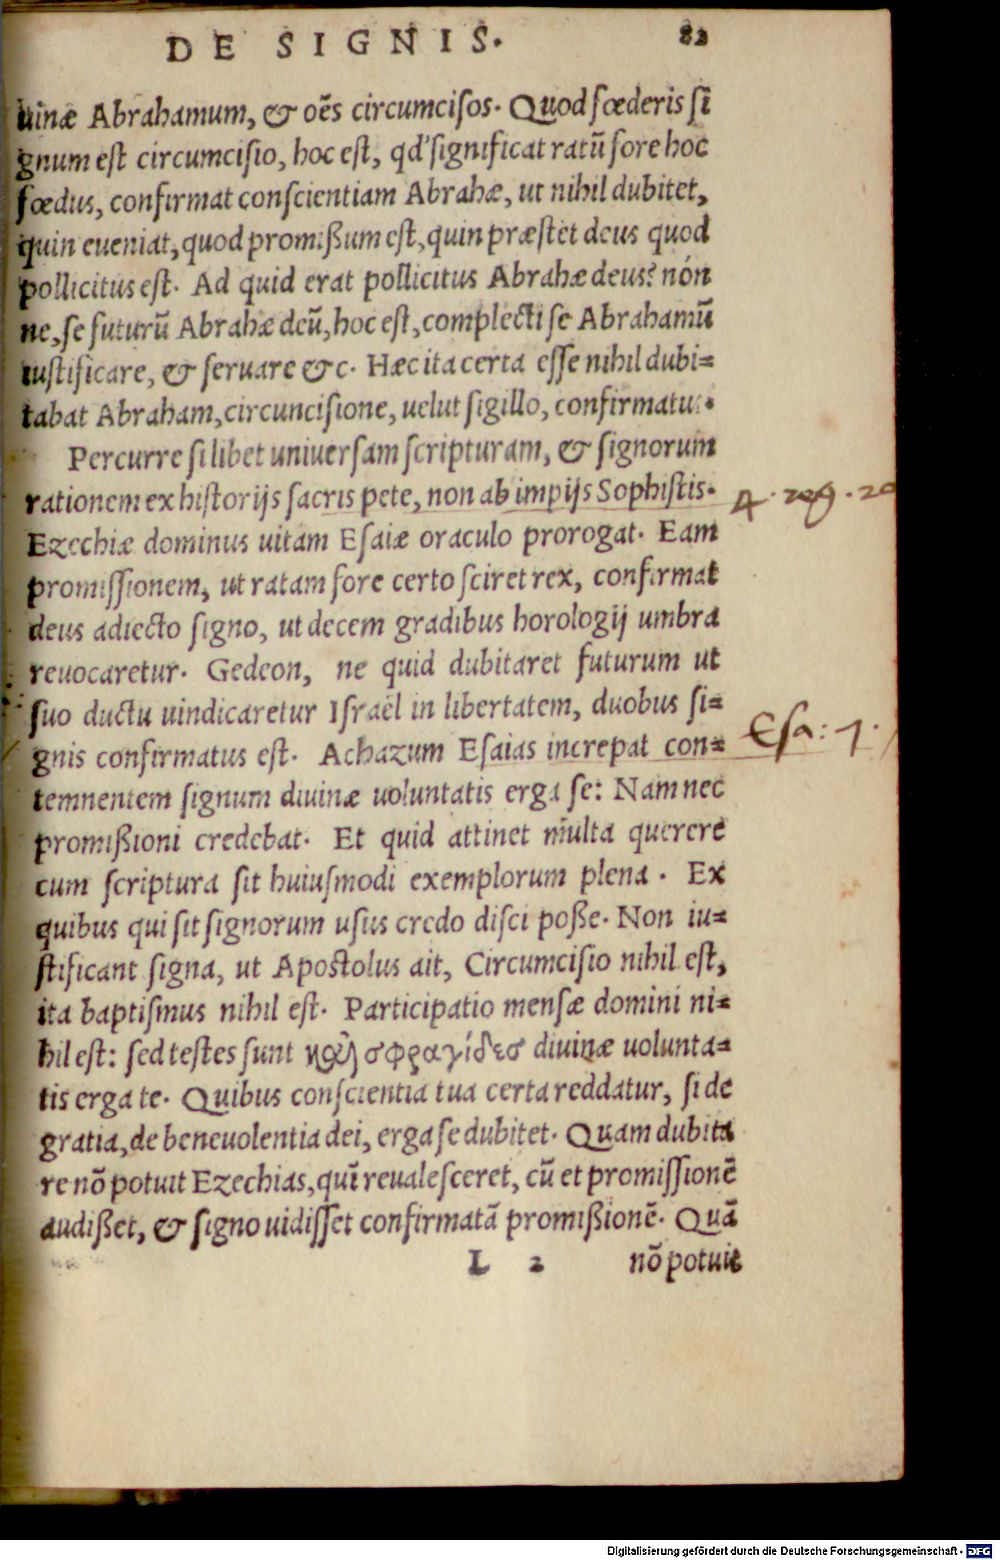 DE SIGNIS. 82
uinæ Abrahamum, & oēs circumcisos. Quod fœderis si
gnum est circumcisio, hoc est, qd' significat ratū fore hoc
fœdus, confirmat conscientiam Abrahæ, ut nihil dubitet,
quin eueniat, quod promißum est, quin præstet deus quod
pollicitus est. Ad quid erat pollicitus Abrahæ deus? nón
ne, se futurū Abrahæ deū, hoc est, complecti se Abrahamū
iustificare, & seruare &c. Hæc ita certa esse nihil dubi=
tabat Abraham, circuncisione, uelut sigillo, confirmatus.
Percurre si libet uniuersam scripturam, & signorum
rationem ex historijs sacris pete, non ab impijs Sophistis. 4. reg. 20
Ezechiæ dominus uitam Esaiæ oraculo prorogat. Eam
promissionem, ut ratam fore certo sciret rex, confirmat
deus adiecto signo, ut decem gradibus horologij umbra
reuocaretur. Gedeon, ne quid dubitaret futurum ut
suo ductu uindicaretur Israël in libertatem, duobus si=
gnis confirmatus est. Achazum Esaias increpat con= Esa: 7.
temnentem signum diuinæ uoluntatis erga se: Nam nec
promißioni credebat. Et quid attinet multa querere
cum scriptura sit huiusmodi exemplorum plena. Ex
quibus qui sit signorum usus credo disci poße. Non iu=
stificant signa, ut Apostolus ait, Circumcisio nihil est,
ita baptismus nihil est. Participatio mensæ domini ni=
hil est: sed testes sunt καὶ σφραγίδεσ diuinæ uolunta=
tis erga te. Quibus conscientia tua certa reddatur, si de
gratia, de beneuolentia dei, erga se dubitet. Quam dubita
re nō potuit Ezechias, quī reualesceret, cū et promissionē
audißet, & signo uidisset confirmatā promißionē. Quā
L 2 nō potuit
Digitalisierung gefördert durch die Deutsche Forschungsgemeinschaft - DFG